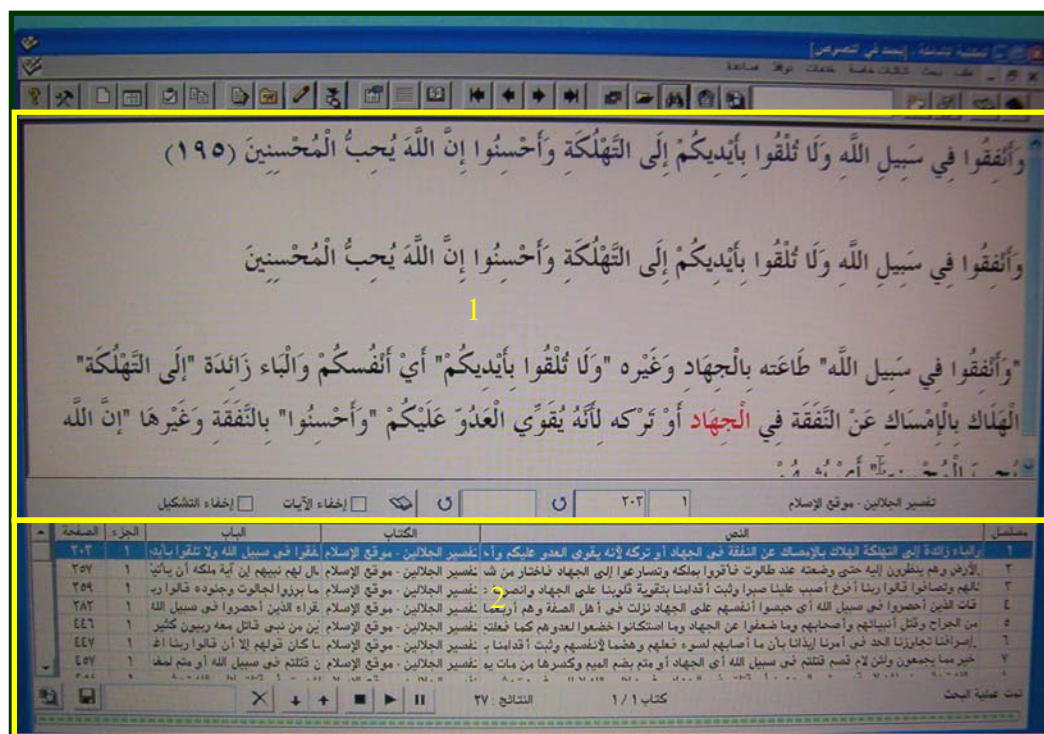 المكتبة الشاملة - [بحث في النصوص]
ملف بحث شاشات خاصة خدمات نوافذ مساعدة
وَأَنْفِقُوا فِي سَبِيلِ اللَّهِ وَلَا تُلْقُوا بِأَيْدِيكُمْ إِلَى التَّهْلُكَةِ وَأَحْسِنُوا إِنَّ اللَّهَ يُحِبُّ الْمُحْسِنِينَ (١٩٥)
وَأَنْفِقُوا فِي سَبِيلِ اللَّهِ وَلَا تُلْقُوا بِأَيْدِيكُمْ إِلَى التَّهْلُكَةِ وَأَحْسِنُوا إِنَّ اللَّهَ يُحِبُّ الْمُحْسِنِينَ
1
"وَأَنْفِقُوا فِي سَبِيل اللَّه" طَاعَته بِالْجِهَادِ وَغَيْره "وَلَا تُلْقُوا بِأَيْدِيكُمْ" أَيْ أَنْفُسكُمْ وَالْبَاء زَائِدَة "إلَى التَّهْلُكَة"
الْهَلَاك بِالْإِمْسَاكِ عَنْ النَّفَقَة فِي الْجِهَاد أَوْ تَرْكه لِأَنَّهُ يُقَوِّي الْعَدُوّ عَلَيْكُمْ "وَأَحْسِنُوا" بِالنَّفَقَةِ وَغَيْرهَا "إنَّ اللَّه
تفسير الجلالين - موقع الإسلام ١ ٢٠٣ إخفاء الآيات إخفاء التشكيل
مسلسل النص الكتاب الباب الجزء الصفحة
١ والباء زائدة إلى التهلكة الهلاك بالإمساك عن النفقة في الجهاد أو تركه لأنه يقوي العدو عليكم تفسير الجلالين - موقع الإسلام في سبيل الله ولا تلقوا ١ ٢٠٣
٢ الأرض وهم ينظرون إليه حتى وضعته عند طالوت فأقروا بملكه وتسارعوا إلى الجهاد فاختار من تفسير الجلالين - موقع الإسلام لهم نبيهم إن آية ملكه أن ١ ٣٥٧
٣ وتصافوا قالوا ربنا أفرغ أصبب علينا صبرا وثبت أقدامنا بتقوية قلوبنا على الجهاد تفسير الجلالين - موقع الإسلام برزوا لجالوت وجنوده قالوا ١ ٣٥٩
٤ الذين أحصروا في سبيل الله أي حبسوا أنفسهم على الجهاد نزلت في أهل الصفة وهم تفسير الجلالين - موقع الإسلام الذين أحصروا في سبيل الله ١ ٣٨٢
٥ من الجراح وقتل أنبيائهم وأصحابهم وما ضعفوا عن الجهاد وما استكانوا خضعوا لعدوهم كما تفسير الجلالين - موقع الإسلام من نبي قاتل معه ربيون كثير ١ ٤٤٦
٦ إسرافنا تجاوزنا الحد في أمرنا إيذانا بأن ما أصابهم لسوء فعلهم وهضما لأنفسهم وثبت أقدامنا تفسير الجلالين - موقع الإسلام كان قولهم إلا أن قالوا ربنا ١ ٤٤٧
٧ خير مما يجمعون ولئن لام قسم قتلتم في سبيل الله أي الجهاد أو متم بضم الميم وكسرها من مات تفسير الجلالين - موقع الإسلام قتلتم في سبيل الله أو متم ١ ٤٥٧
2
تمت عملية البحث كتاب ١ / ١ النتائج : ٢٧